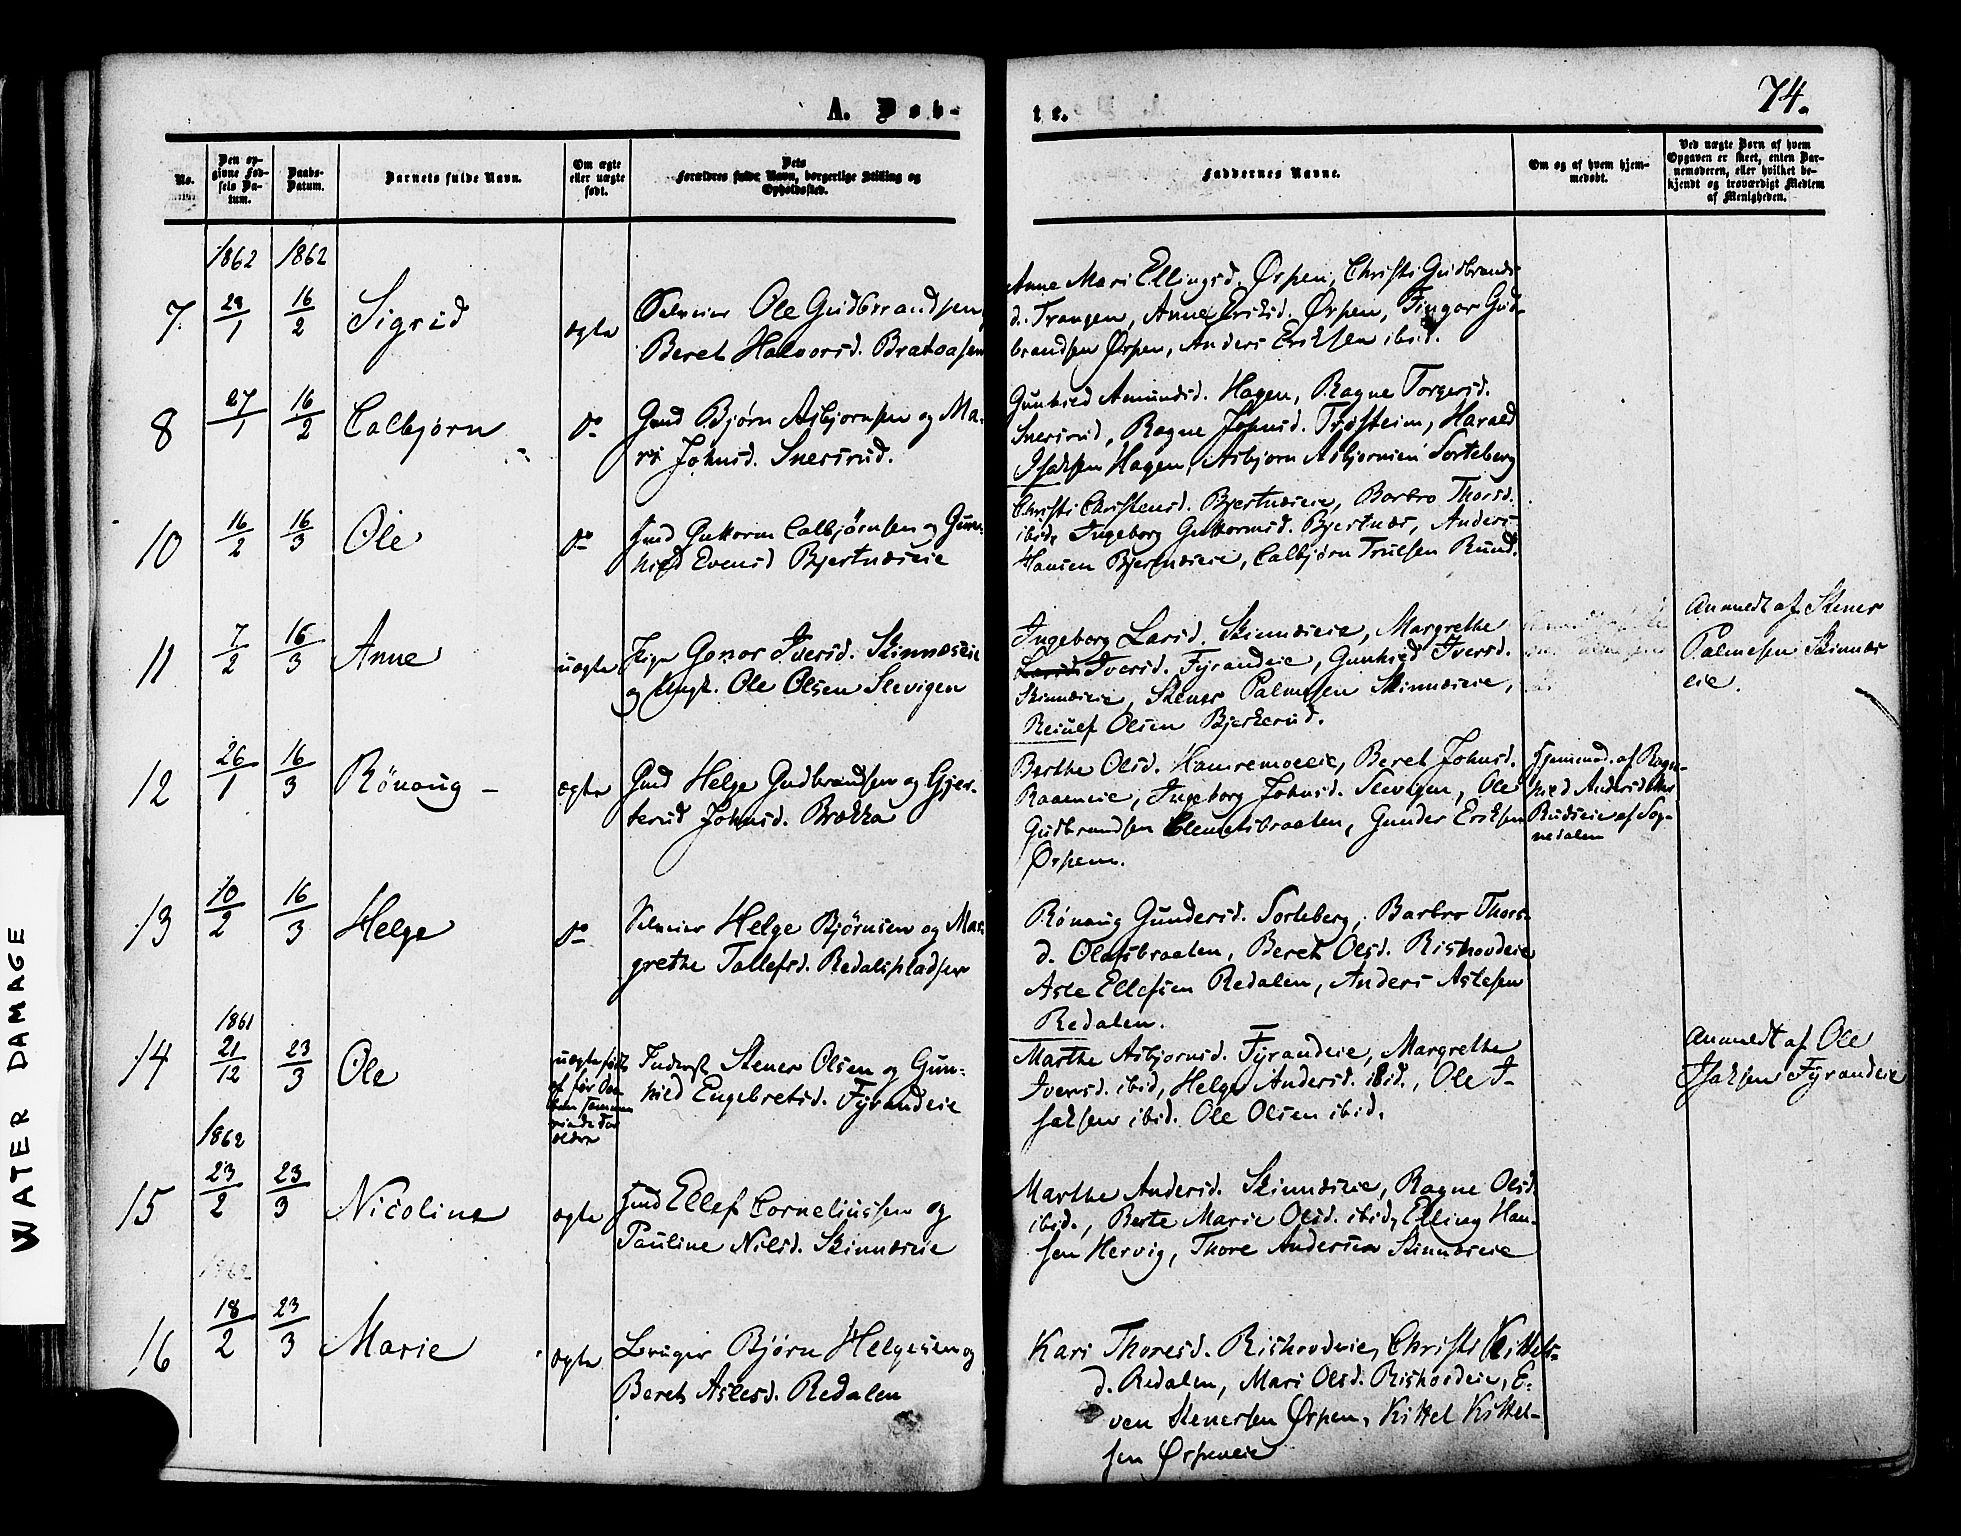 74.
A. Døb-
te.
No.
Den op-
givne Fød-
sels Da-
tum.
Daabs-
Datum.
Barnets fulde Navn.
Om ægte
eller uægte
født.
Dets
Forældres fulde Navn, borgerlige Stilling og
Opholdssted.
Faddernes Navne.
Om og af hvem hjem-
medøbt.
Ved uægte Børn af hvem
Opgaven er skeet, enten Bar-
nemoderen, eller hvilket be-
kjendt og troværdigt Medlem
af Menigheden.
1862 1862
7. 29/1 16/2 Sigrid ægte
Selveier Ole Gudbrandsen,
Beret Halvorsd. Bratvasen
Anne Mari Ellingsd. Ørpen, Christi Gudbrands-
d. Trangen, Anne Eriksd. Ørpen, Fingar Gud-
brandsen Ørpen, Anders Eriksen ibid.
8 27/1 16/2 Calbjørn do
Gmd Bjørn Asbjørnsen og Ma-
ri Johnsd. Snersrud.
Gunhild Amundsd. Hagen, Ragne Torgersd.
Snersrud, Ragne Johnsd. Trøsteim, Harald
Isaksen Hagen, Asbjørn Asbjørnsen Sorteberg
10 16/2 16/3 Ole do
Hmd Guttorm Calbjørnsen og Gun-
hild Evensd Bjertnæseie
Christi Christensd. Bjertnæseie, Barbro Thorsd.
ibid, Ingeborg Guttormsd. Bjertnæs, Anders
Hansen Bjertnæseie, Calbjørn Truelsen Rund.
11 7/2 16/3 Anne uægte
Pige Gonor Iversd. Skinnæseie
og Ungk. Ole Olsen Slevigen
Ingeborg Larsd. Skinnæseie, Margrethe
Larsd. Iversd. Fyrandeie, Gunhild Iversd.
Skinnæseie, Stener Palmesen Skinnæseie,
Reiulf Olsen Bjerkerud.
Anmeldt af Stener
Palmesen Skinnæs
eie.
12 26/1 16/3 Rönaug - ægte
Gmd Helge Gudbrandsen og Gjer-
terud Johnsd. Brække
Berthe Olsd. Hamremoeie, Beret Johnsd.
Raaeneie, Ingeborg Johnsd. Slevigen, Ole
Gudbrandsen Clemetsbraaten, Gunder Eriksen
Ørpen.
Hjemmed. af Ragn-
hild Andersd
Rudseie af Sog-
nedalen
13 10/2 16/3 Helge do
Selveier Helge Bjørnsen og Mar-
grethe Tollefsd. Redalspladsen
Rønaug Gundersd. Sorteberg, Barbro Thors-
d. Olafsbraaten, Beret Olsd. Rishovdeie
Asle Ellefsen Redalen, Anders Aslesen
Redalen.
1861
14 21/12 23/3 Ole
uægte født
Inderst Stener Olsen og Gun-
hild Engebretsd. Fyrandeie
Marthe Asbjørnsd. Fyrandeie, Margrethe
Iversd. ibid, Helge Andersd. ibid., Ole I-
saksen ibid. Ole Olsen ibid.
Anmeldt af Ole
Isaksen Fyrandeie
1862
15 23/2 23/3 Nicoline ægte
Hmd Ellef Corneliussen og
Pauline Nilsd. Skinnæseie
Marthe Andersd. Skinnæseie, Ragne Olsd.
ibid., Berte Marie Olsd. ibid, Elling Han-
sen Hervig, Thore Andersen Skinnæseie
1862
16 18/2 23/3 Marie ægte
Bruger Bjørn Helgesen og
Beret Aslesd. Redalen
Kari Thoresd. Rishovdeie, Christi Kittels-
d. Redalen, Mari Olsd. Rishovdeie, E-
ven Stenersen Ørpen, Kittel Kittel-
sen Ørpeneie
WATER DAMAGE